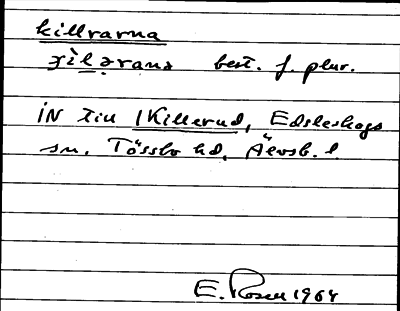 killrarna
best. f. plur.
IN till 1Killerud, Edsleskogs
sn. Tössbo hd, Älvsb. l.
E. Rosen 1964